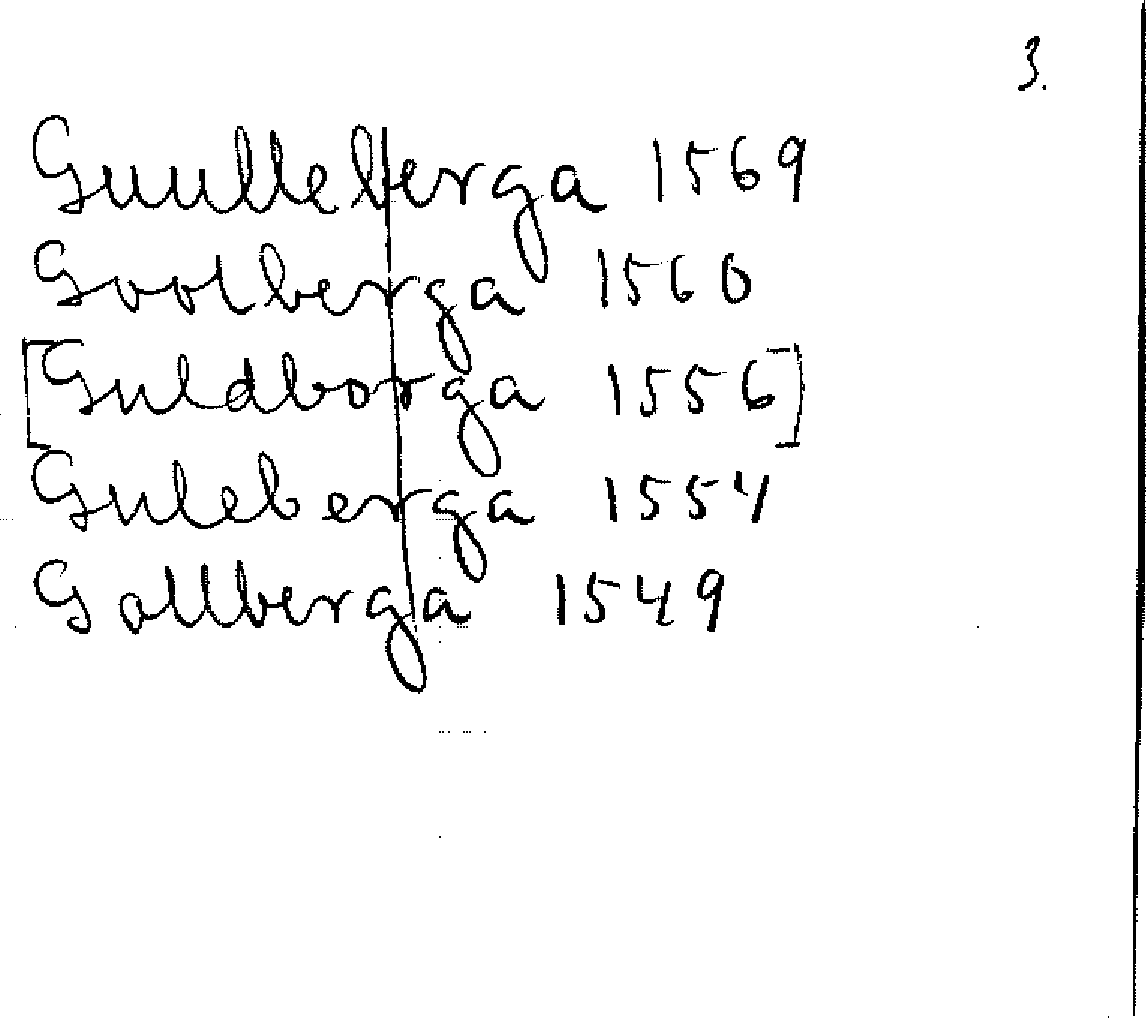 3.
Guulleberga 1569
Goolberga 1560
[Guldborga 1556]
Guleberga 1554
Gollberga 1549